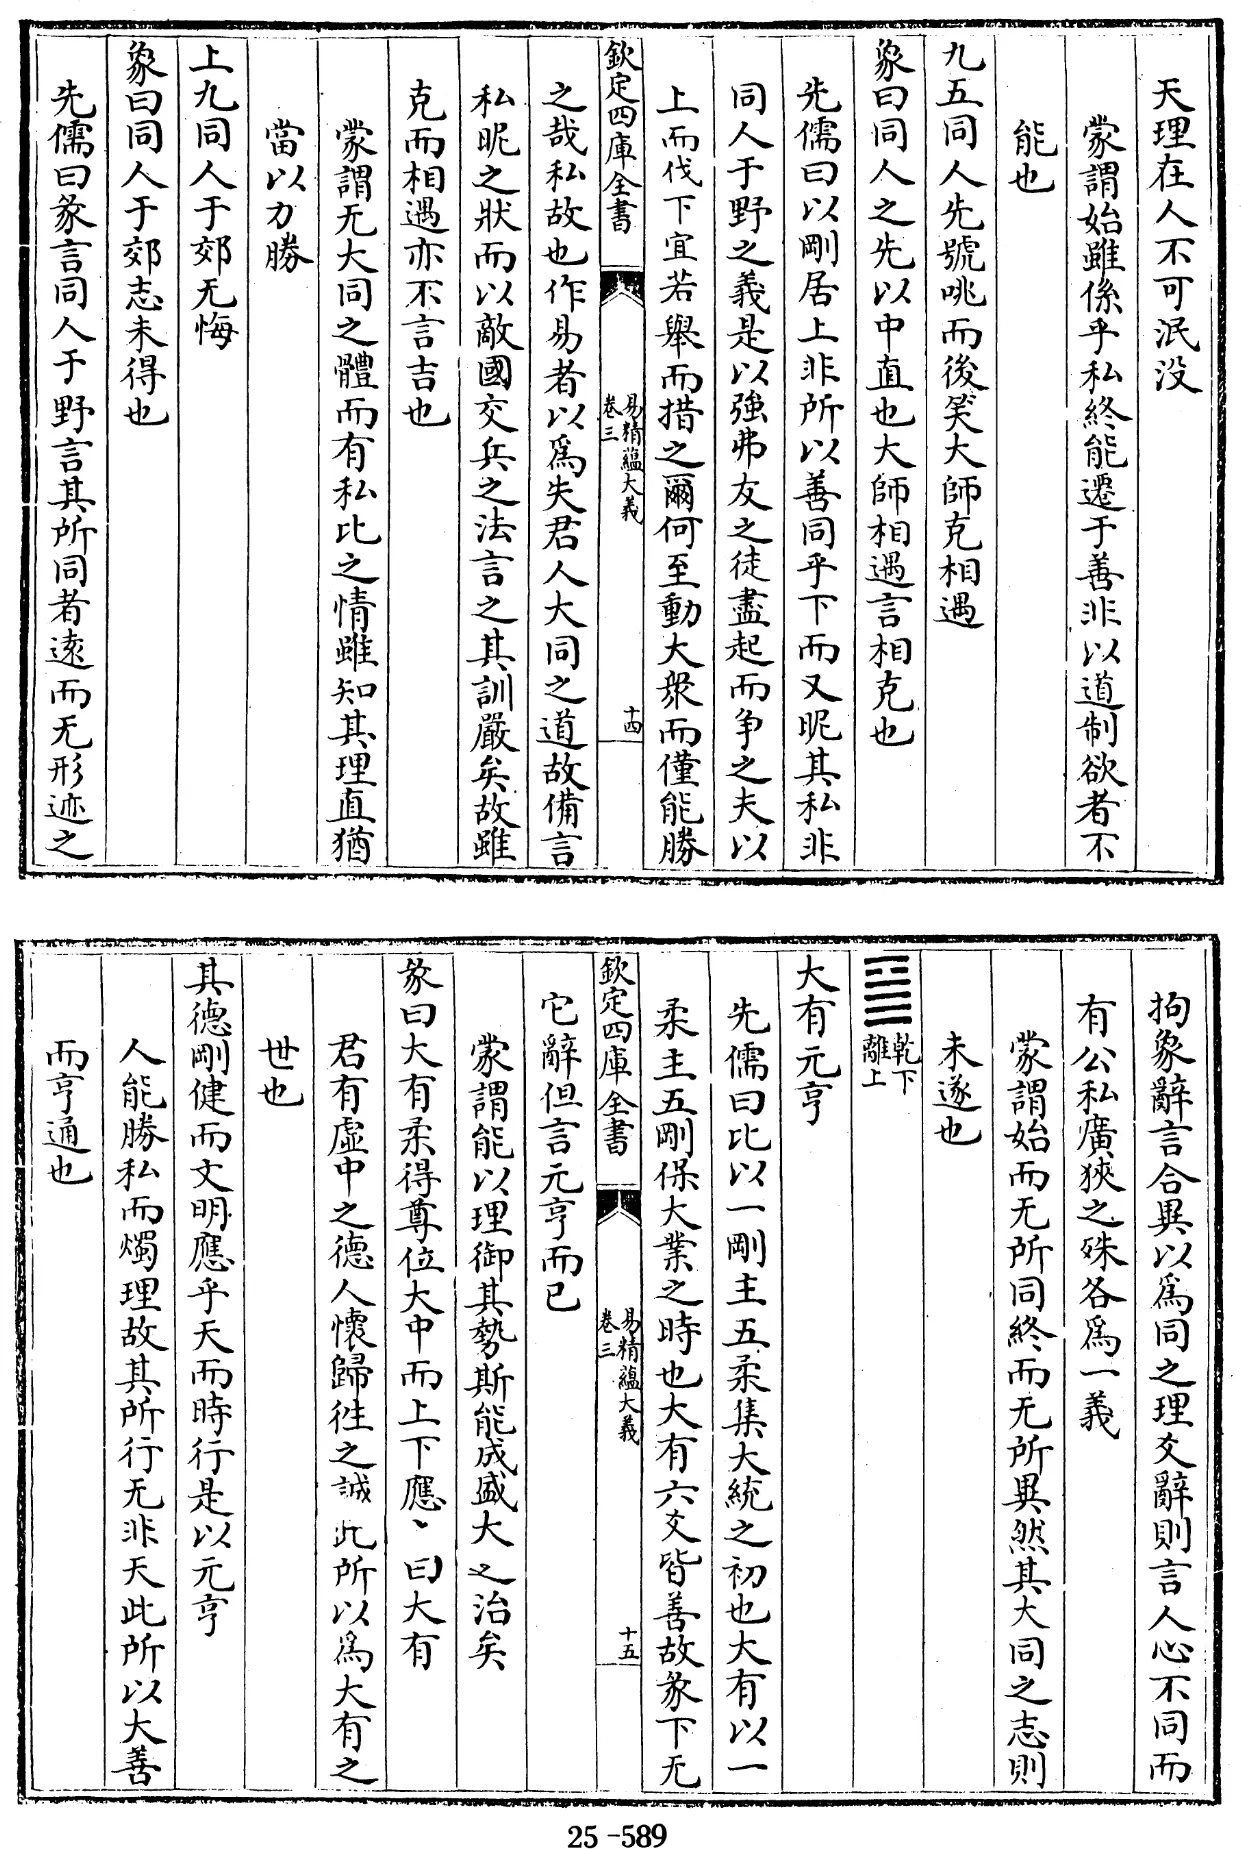 天理在人不可泯没
蒙謂始雖係乎私終能遷于善非以道制欲者不
能也
九五同人先號咷而後笑大師克相遇
象曰同人之先以中直也大師相遇言相克也
先儒曰以剛居上非所以善同乎下而又昵其私非
同人于野之義是以強弗友之徒盡起而争之夫以
上而伐下宜若舉而措之爾何至動大衆而僅能勝
欽定四庫全書
易精蘊大義
卷三
十四
之哉私故也作易者以為失君人大同之道故備言
私昵之狀而以敵國交兵之法言之其訓嚴矣故雖
克而相遇亦不言吉也
蒙謂无大同之體而有私比之情雖知其理直猶
當以力勝
上九同人于郊无悔
象曰同人于郊志未得也
先儒曰彖言同人于野言其所同者遠而无形迹之
拘象辭言合異以為同之理爻辭則言人心不同而
有公私廣狹之殊各為一義
蒙謂始而无所同終而无所異然其大同之志則
未遂也
䷍
乾下
離上
大有元亨
先儒曰比以一剛主五柔集大統之初也大有以一
柔主五剛保大業之時也大有六爻皆善故彖下无
欽定四庫全書
易精蘊大義
卷三
十五
它辭但言元亨而已
蒙謂能以理御其勢斯能成盛大之治矣
彖曰大有柔得尊位大中而上下應、曰大有
君有虛中之德人懷歸徃之誠此所以為大有之
世也
其德剛健而文明應乎天而時行是以元亨
人能勝私而燭理故其所行无非天此所以大善
而亨通也
25-589